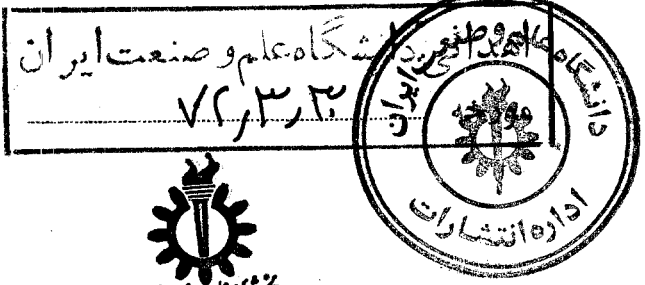 اهدائی دانشگاه علم و صنعت ایران
مورخه ۷۲٫۳٫۳
دانشگاه علم و صنعت ایران
اداره انتشارات